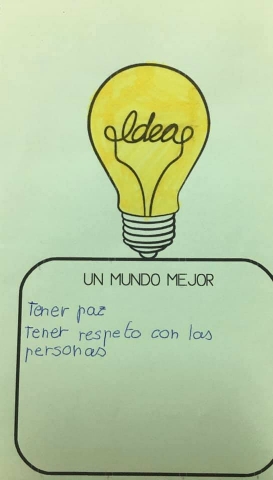 Idea
UN MUNDO MEJOR
Tener paz
Tener respeto con las
personas